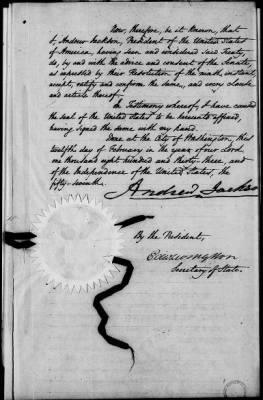 Now, therefore, be it known, that
I, Andrew Jackson, President of the United States
of America, having seen and considered said Treaty,
do, by and with the advice and consent of the Senate,
as expressed by their Resolution of the ninth instant,
accept, ratify and confirm the same, and every clause
and article thereof.
In Testimony whereof, I have caused
the seal of the United States to be hereunto affixed,
having signed the same with my hand.
Done at the City of Washington, this
twelfth day of February in the year of our Lord
one thousand eight hundred and thirty three, and
of the Independence of the United States, the
fifty-seventh.
Andrew Jackson
By the President,
Edw Livingston
Secretary of State.